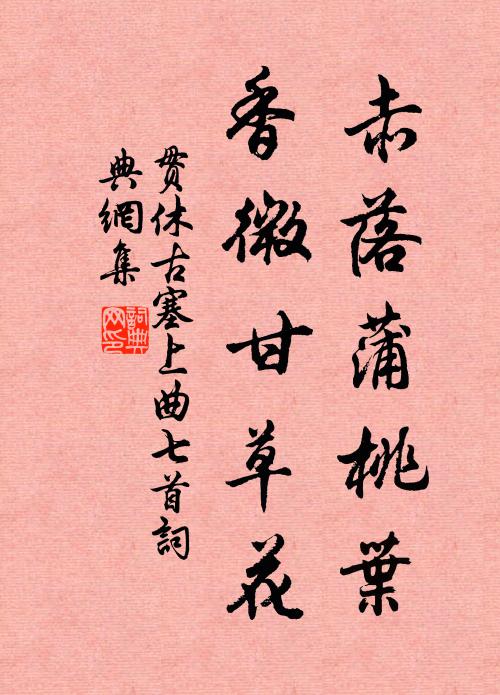 赤落蒲桃葉
香微甘草花
贯休古塞上曲七首詞
典網集
詞典
网印